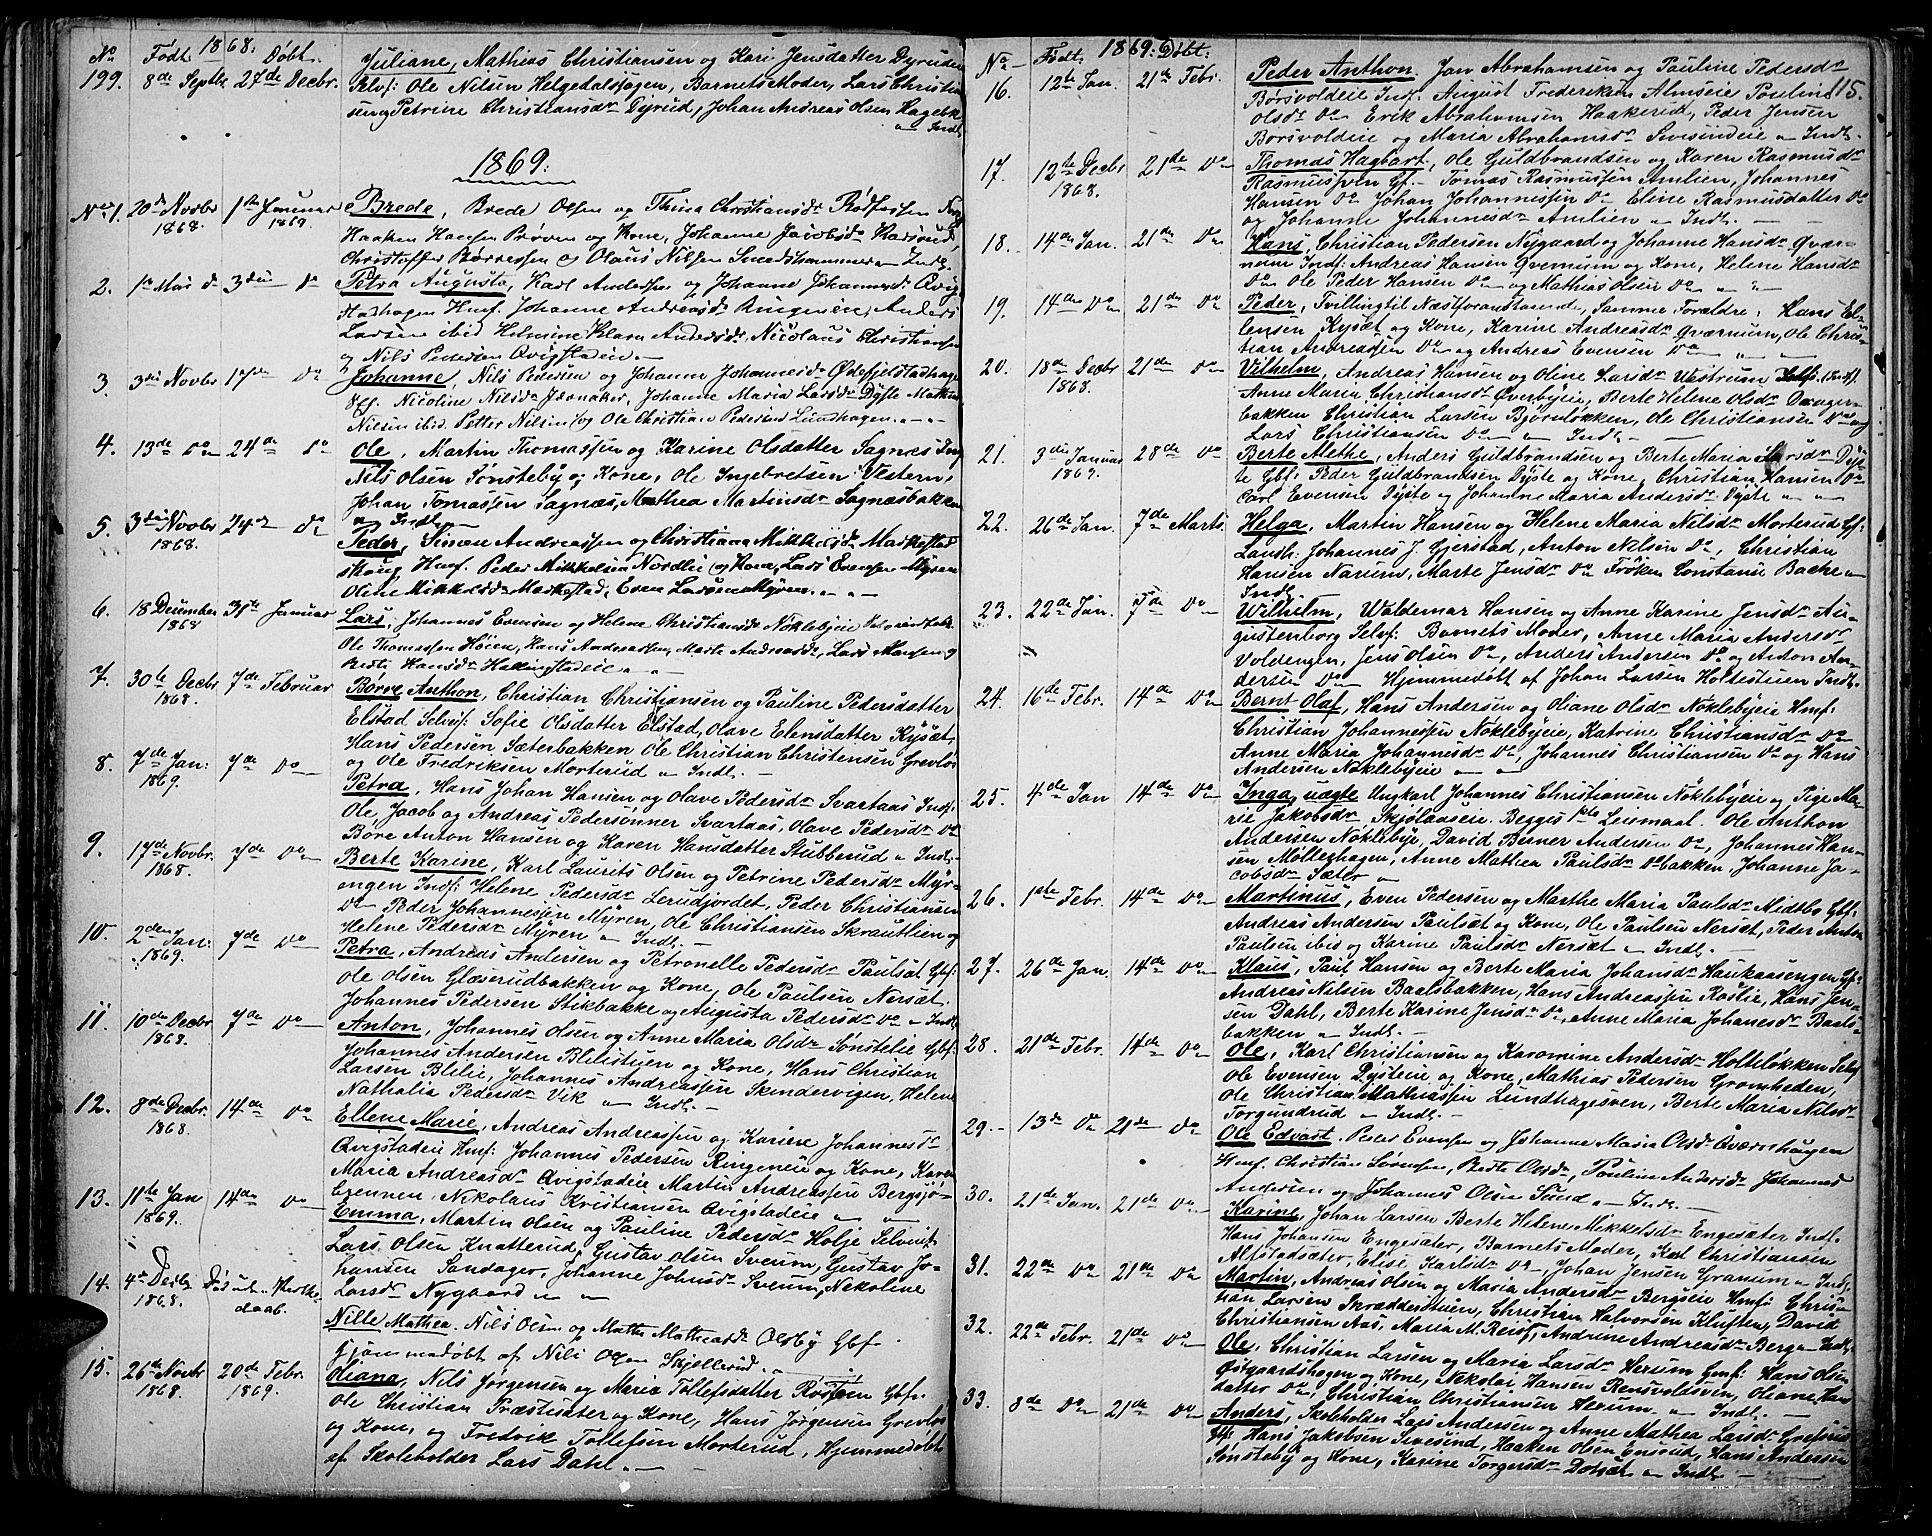 No Født 1868. Døbt.
199. 8de Septbr 27de Decbr. Juliane, Mathias Christiansen og Kari Jensdatter Dyruden
Selvf: Ole Nilsen Helgedalshagen, Barnets Moder, Lars Christian-
sen og Petrine Christiansdr Dyrud, Johan Andreas Olsen Hagebk
Indl.
1869.
No 1. 20de Novbr 1868. 1ste Januar 1869. Brede, Brede Olsen og Thina Christiansdr
Haaken Hansen Prøven og Kone, Johanne Jacobsdr
Christoffer Børresen og Olaus Nilsen Smedshammer Indl.
2. 3die Do Petra Augusta, Karl Andersen og Johanne Johannesdr
Hmf. Johanne Andreasdr Ringeneie, Anders
Larsen ibid Helmine Klara Andersdr, Nicolaus Christiansen
og Nils Pedersen Qvigstadeie.
3. 3die Novbr 17de Do Johanne, Nils Pedersen og Johanne Johannesdr Ødefjeldstadhage
Gf. Nicoline Nilsdr Jævnaker, Johanne Maria Larsdr Dyste Mathias
Nilsen ibid. Petter Nilsen og Ole Christian Pedersen Lundhagen.
4. 13de Do 24de Do Ole, Martin Thomassen og Karine Olsdatter Sagnes Inf
Nils Olsen Sønsteby og Kone, Ole Ingebretsen Vestern,
Johan Tomassen Sagnæs, Mathea Martinsdr Sagnæsbakken
Indl.
5. 3die Novbr 1868. 24de Do Peder, Simen Andreassen og Christiana Mikkelsdr Markestad
skoug Hmf. Peder Mikkelsen Nordlie og Kone, Lars Evensen Myren
Oline Mikkelsdr Markestad, Even Larsen Myren.
6. 18 December 1868 31te Januar Lars, Johannes Evensen og Helene Christiansdr Nøklebyeie
Ole Thomassen Høien, Hans Andreassen, Marte Andreasdr, Lars Hansen og
Berte Hansdr
7. 30te Decbr 1868. 7de Februar Børre Anthon, Christian Christiansen og Pauline Pedersdatter
Elstad Selvf: Sofie Olsdatter Elstad, Olave Elensdatter Kysæt,
Hans Pedersen Sæterbakken Ole Christian Christensen Grevlos
og Ole Fredriksen Morterud Indl.
8. 7de Jan: 1869. 7de Do Petra, Hans Johan Hansen og Olave Pedersdr Svartaas Indf:
Ole, Jacob og Andreas Pedersønner Svartaas, Olave Pedersdr Do
Børe Anton Hansen og Karen Hansdatter Stubberud Indl.
9. 17de Novbr. 1868. 7de Do Berte Karine, Karl Laurits Olsen og Petrine Pedersdr Myr-
engen Indf: Helene Pedersdr Lerudjordet, Peder Christiansen
Do Peder Johannessen Myren, Ole Christiansen Skrautlien og
Helene Pedersdr Myren Indl.
10. 2den Jan: 1869. 7de Do Petra, Andreas Andersen og Petronelle Pedersdr Paulsæt Gbf:
Ole Olsen Glæserudbakken og Kone, Ole Paulsen Nersæt.
Johannes Pedersen Stikbakke og Augusta Pedersdr Do Indl.
11. 10de Decbr 1868. 7de Do Anton, Johannes Olsen og Anne Maria Olsdr Sønstelie Gbf:
Johannes Andersen Blilistuen og Kone, Hans Christian
Larsen Blilie, Johannes Andreassen Skindervigen, Helene
Nathalia Pedersdr Vik Indl.
12. 8de Decbr. 1868. 14de Do Ellene Marie, Andreas Andreassen og Karine Johannesdr
Qvigstadeie Hmf: Johannes Pedersen Ringeneie og Kone, Karen
Maria Andreasdr Qvigstadeie Martin Andreassen Bergsjø-
Nikolaus Kristiansen Qvigstadeie
13. 11te Jan 1869. 14de Do Emma, Martin Olsen og Pauline Pedersdr Holje
Lars Olsen Knatterud, Gustav Olsen Sveum, Gustav Jo-
hansen Søndager, Johanne Johnsdr Sveum, Nekoline
Larsdr Nygaard
14. 4de Decbr 1868.
Nille Mathea. Nils Olsen og Matta Matheasdr Olsby Gbf.
hjemmedøbt af Nils Olsen Skjellerud.
15. 26de Novbr 1868. 20de Febr. 1869. Oliana, Nils Jørgensen og Maria Tollefsdatter Røstøen Gbf:
Ole Christian Præstsæter og Kone, Hans Jørgensen Grevlos
og Kone, og Fredrik Tollefsen Morterud, Hjemmedøbt
af Skoleholder Lars Dahl.
No Født. 1869. Døbt.
115.
16. 12te Jan. 21de Febr. Peder Anthon. Jon Abrahamsen og Pauline Pedersdr
Børsvoldeie Indf. August Frederiksen Almseie Pauline
Olsdr Do Erik Abrahamsen Haakerud, Peder Jensen
Børsvoldeie og Maria Abrahamsdr Sivesindeie Indl.
17. 12te Decbr 1868. 21de Do Thomas Hagbart, Ole Guldbrandsen og Karen Rasmusdr
Rasmussveen Gf. Tomas Rasmussen Amlien, Johannes
Hansen Do Johan Johannessen Do Eline Rasmusdatter Do
og Johanne Johannesdr Amlien Indl.
18. 14de Jan. 21de Do Hans, Christian Pedersen Nygaard og Johanne Hansdr Qvær-
num Indf: Andreas Hansen Qvernum og Kone, Helene Hansdr
Do Ole Peder Hansen Do og Mathias Olsen Do
19. 14de Do 21de Do Peder, Tvilling til Næstforanstaaende, Samme Forældre: Hans El-
lensen Kysæt og Kone, Karine Andreasdr Qværnum, Ole Chris-
tian Andreassen Do og Andreas Evensen Do
20. 18de Decbr 1868. 21de Do Vilhelm, Andreas Hansen og Oline Larsdr Vestrum (Indf).
Anne Maria Christiansdr Øverbyeie, Berte Helene Olsdr
bakken Christian Larsen Bjørnløkken, Ole Christiansen Do og
Lars Christiansen Do Indl.
21. 3die Januar 1869. 28de Do Berte Alethe, Anders Guldbrandsen og Berte Maria Larsdr Dys-
te Gbf: Peder Guldbrandsen Dyste og Kone, Christian Hansen Do
Carl Evensen Dyste og Johanne Maria Andersdr Dyste
22. 26de Jan. 7de Marts. Helga, Martin Hansen og Helene Maria Nilsdr Morterud Gf:
Landh: Johannes J. Gjerstad, Anton Nilsen Do, Christian
Hansen Narum, Marte Jensdr Do Frøken Constance Bache
Indl.
23. 22de Jan. 7de Do Wilhelm, Waldemar Hansen og Anne Karine Jensdr Au-
gustenborg Selvf: Barnets Moder, Anne Maria Andersdr
Voldengen, Jens Olsen Do, Anders Andersen Do og Anton An-
dersen Do Hjemmedøbt af Johan Larsen Holtestuen Indl.
24. 16de Febr. 14de Do Bernt Olaf, Hans Andersen og Oliane Olsdr Nøklebyeie Hmf:
Christian Johannessen Nøklebyeie, Katrine Christiansdr Do
Anne Maria Johannesdr Do, Johannes Christiansen Do og Hans
Andersen Nøklebyeie
25. 4de Jan 14de Do Inga, uægte Ungkarl Johannes Christiansen Nøklebyeie og Pige Ma-
rie Jakobsdr Skjølaaseie. Begges 1ste Leiermaal. Ole Anthon
Andersen Nøkleby, David Berner Andersen Do, Johannes Han-
sen Møllerhagen, Anne Mathea Paulsdr Do bakken, Johanne Ja-
cobsdr Sæter
26. 1ste Febr. 14de Do Martinus, Even Pedersen og Marthe Maria Paulsdr Midtbø Gbf:
Andreas Andersen Paulsæt og Kone, Ole Paulsen Nersæt, Peder Anton
Paulsen ibid og Karine Paulsdr Nersæt Indl.
27. 26de Jan 14de Do Klaus, Paul Hansen og Berte Maria Johansdr Haukaasengen Gf:
Andreas Nilsen Baalsbakken, Hans Andreassen Røslie, Hans Jen-
sen Dahl, Berte Karine Jensdr Do, Anne Maria Johanesdr Baals-
bakken Indl.
28. 21de Febr. 14de Do Ole, Karl Christiansen og Karomine Andersdr Holteløkken Selvf
Ole Evensen Dysteie og Kone, Mathias Pedersen Gromheden,
Ole Christian Mathiassen Lundhagesven, Berte Maria Nilsdr
Torgundrud Indl.
29. 13de Do 21de Do Ole Edvart. Peder Evensen og Johanne Maria Olsdr Qværnhaugen
Hmf. Christian Sørensen, Berte Olsdr, Pauline Andersdr Johannes
Andersen og Johannes Olsen Sund Indl.
30. 21de Jan. 21de Do Karine, Johan Larsen Berte Helene Mikkelsdr Engesæter Indf.
Hans Johansen Engesæter, Barnets Moder, Karl Christiansen
Alfstadsæter, Elise Karlsdr Do, Johan Jensen Granum Indl.
31. 22de Do 21de Do Martin, Andreas Olsen og Maria Andersdr Bergseie Hmf: Chris-
tian Larsen Skrædderstuen, Christian Halvorsen Kluften, David
Christiansen Aas, Maria M. Reist, Andrine Andreasdr Berg Indl.
32. 22de Febr. 21de Do Ole, Christian Larsen og Maria Larsdr Herum Gmf: Hans Olsen
Østgaardshagen og Kone, Nekolai Hansen Rensvoldsven, Oliane Hans
datter Do, Christian Christiansen Herum Indl.
33. 8de Do 21de Do Anders, Skoleholder Lars Andersen og Anne Mathea Larsdr Grefsrud
Gf: Hans Jakobsen Sivesind, Haaken Olsen Ensrud, Hans Andersen
Sønsteby og Kone, Karine Torgersdr Dotset Indl.